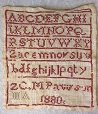 ABCDEFGH
IKLMNOPQ
RSTUVWXY
Zacemnorsuv
bdfghijklpqty
Z.C.M
1880.